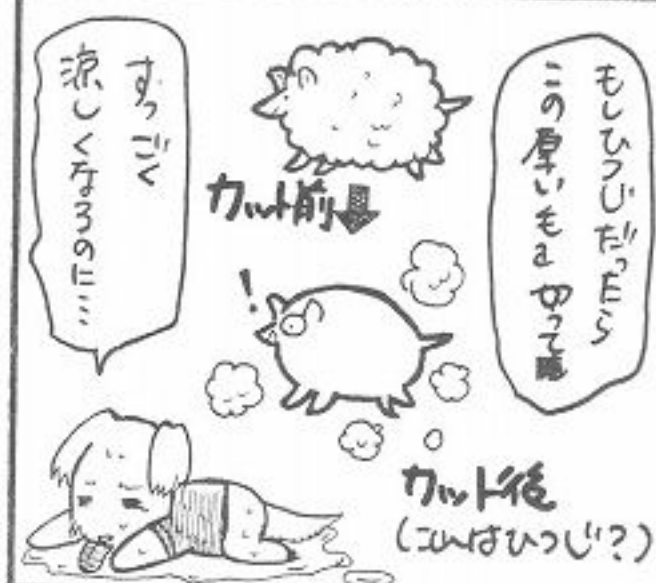 もしひつじだったら
この厚いもを切って
すっごく
涼しくなるのに…
カット前
!
カット後
(これはひつじ?)